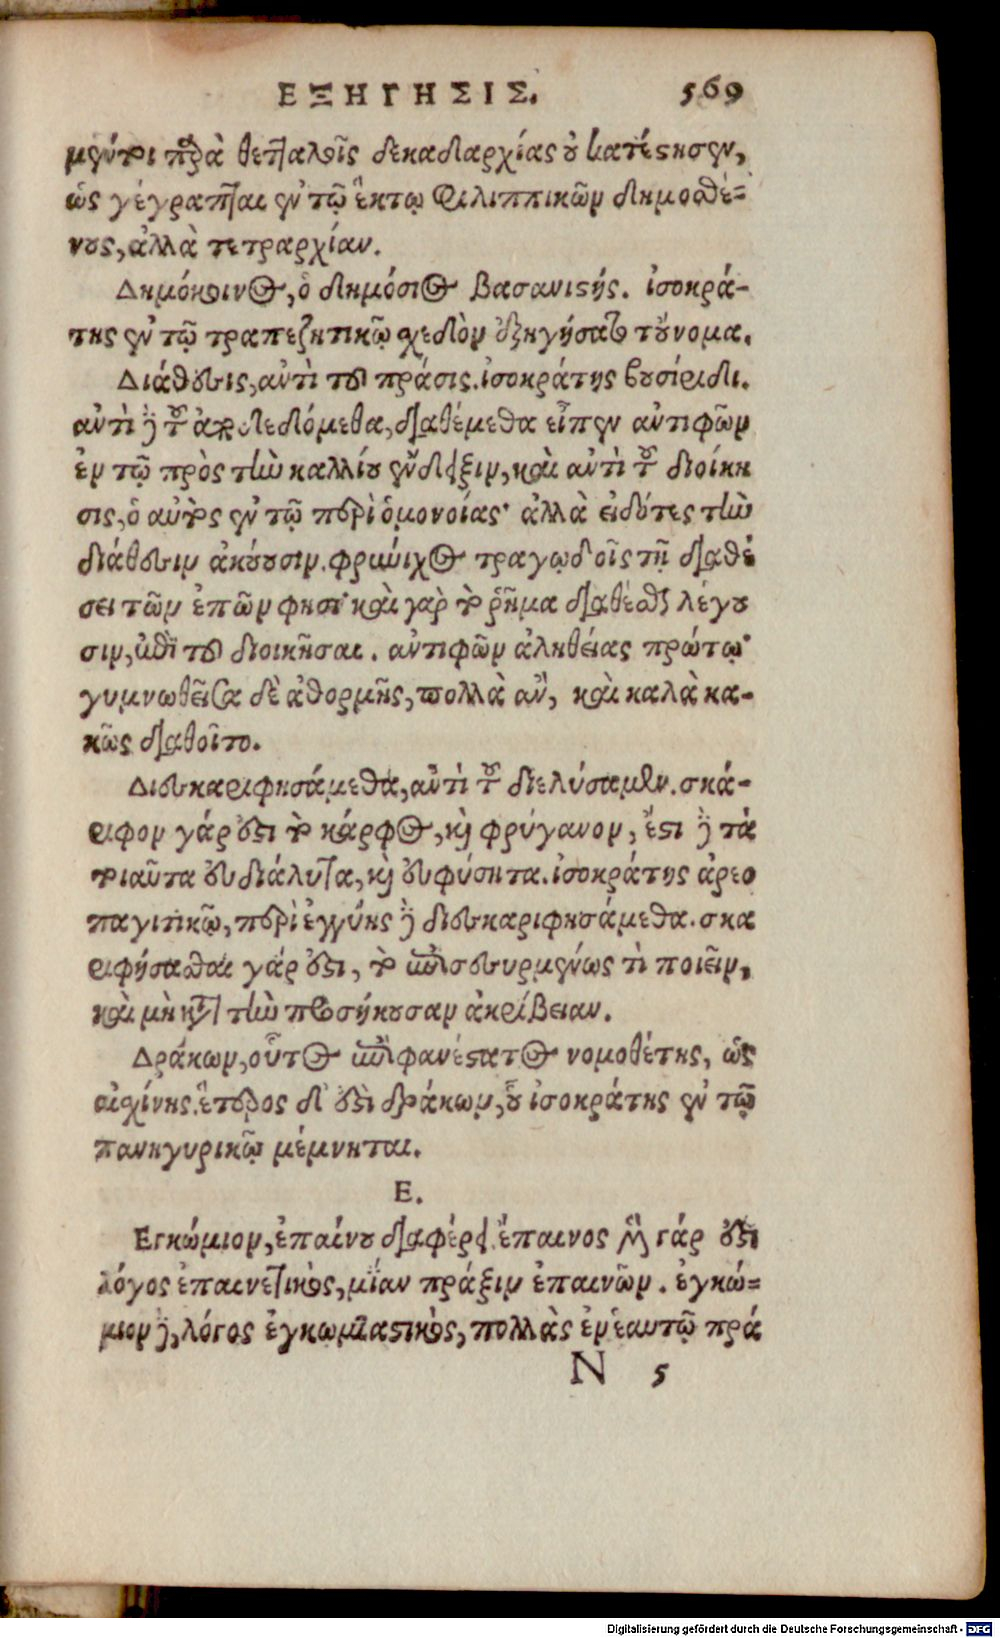 ΕΞΗΓΗΣΙΣ. 569
μέντοι παρὰ θετταλοῖς δεκαδαρχίας οὐ κατέστησεν,
ὡς γέγραπται ἐν τῷ ἕκτῳ Φιλιππικῶν δημοσθέ-
νους, ἀλλὰ τετραρχίαν.
Δημόκοινος, ὁ δημόσιος βασανιστής. ἰσοκρά-
της ἐν τῷ τραπεζητικῷ σχεδὸν ἐξηγήσατο τοὔνομα.
Διάθεσις, ἀντὶ τοῦ πράσις. ἰσοκράτης βουσίριδι.
ἀντὶ δὲ τοῦ διαθέμεθα εἶπεν ἀντιφῶν
ἐν τῷ πρὸς τὴν καλλίου ἔνδειξιν, καὶ ἀντὶ τοῦ διοίκη
σις, ὁ αὐτὸς ἐν τῷ περὶ ὁμονοίας· ἀλλὰ εἰδότες τὴν
διάθεσιν ἀκούουσιν. φρύνιχος τραγῳδοῖς τῇ διαθέ
σει τῶν ἐπῶν φησι· καὶ γὰρ τὸ ῥῆμα διαθέσθαι λέγου
σιν, ἀντὶ τοῦ διοικῆσαι. ἀντιφῶν ἀληθείας πρώτῳ·
γυμνωθεῖσα δὲ ἀθορμῆς, πολλὰ ἂν, καὶ καλὰ κα-
κῶς διαθοῖτο.
Διεσκαριφησάμεθα, ἀντὶ τοῦ διελύσαμεν. σκά-
ριφον γάρ ἐστι τὸ κάρφος, καὶ φρύγανον, ἔστι δὲ τὰ
τοιαῦτα εὐδιάλυτα, καὶ εὐφύσητα. ἰσοκράτης ἀρεο
παγιτικῷ, περὶ ἐγγύης δὲ διεσκαριφησάμεθα. σκα
ριφήσασθαι γάρ ἐστι, τὸ ἐπισεσυρμένως τὶ ποιεῖν,
καὶ μὴ κατὰ τὴν προσήκουσαν ἀκρίβειαν.
Δράκων, οὗτος ἐπιφανέστατος νομοθέτης, ὡς
αἰσχίνης. ἕτερος δ' ἐστὶ δράκων, οὗ ἰσοκράτης ἐν τῷ
πανηγυρικῷ μέμνηται.
Ε.
Εγκώμιον, ἐπαίνου διαφέρει. ἔπαινος μὲν γάρ ἐστι
λόγος ἐπαινετικὸς, μίαν πράξιν ἐπαινῶν. ἐγκώ-
μιον δὲ, λόγος ἐγκωμιαστικὸς, πολλὰς ἐν ἑαυτῷ πρά
N 5
Digitalisierung gefördert durch die Deutsche Forschungsgemeinschaft - DFG